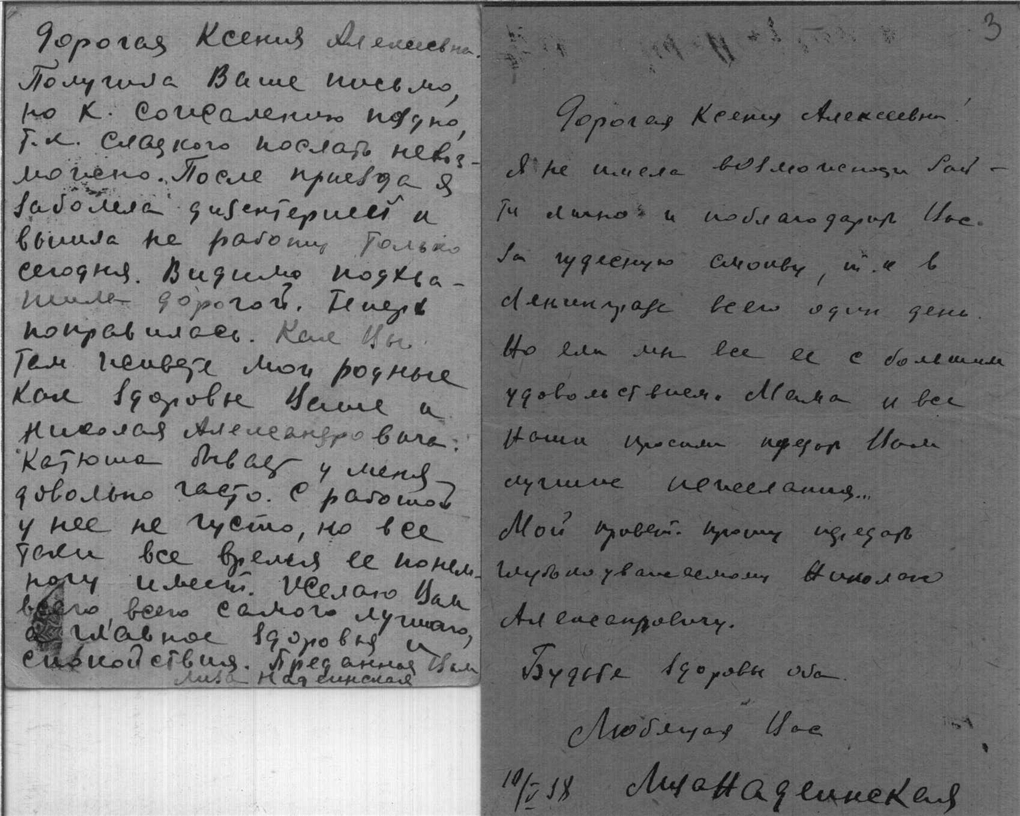 Дорогая Ксения Алексеевна.
Получила Ваше письмо,
но к. сожалению поздно,
т.к. сладкого послать невоз-
можно. После приезда я
заболела дизентерией и
вышла на работу только
сегодня. Видимо подхва-
тила дорогой. Теперь
поправилась. Как Вы
там живете мои родные
Как здоровье Ваше и
Николая Александровича.
Катюша бывает у меня
довольно часто. С работой
у нее не густо, но все
таки все время ее понем-
ногу имеет. Желаю Вам
всего всего самого лучшего,
а главное здоровья и
спокойствия. Преданная Вам
Лиза Надеинская
3
Дорогая Ксения Алексеевна!
Я не имела возможности зай-
ти лично и поблагодарить Вас
за чудесную смокву, т.к в
Ленинграде всего один день.
Но ели мы все ее с большим
удовольствием. Мама и все
наши просили передать Вам
лучшие пожелания...
Мой привет прошу передать
глубокоуважаемому Николаю
Александровичу.
Будьте здоровы оба.
Любящая Вас
10/V 58 Лиза Надеинская